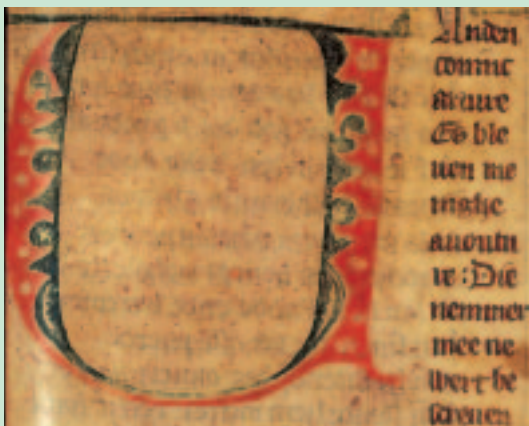 V
Anden
coninc
arture
Es ble
uen me
nighe
auontu
re : Die
nemmer
mee ne
wert be
screuen